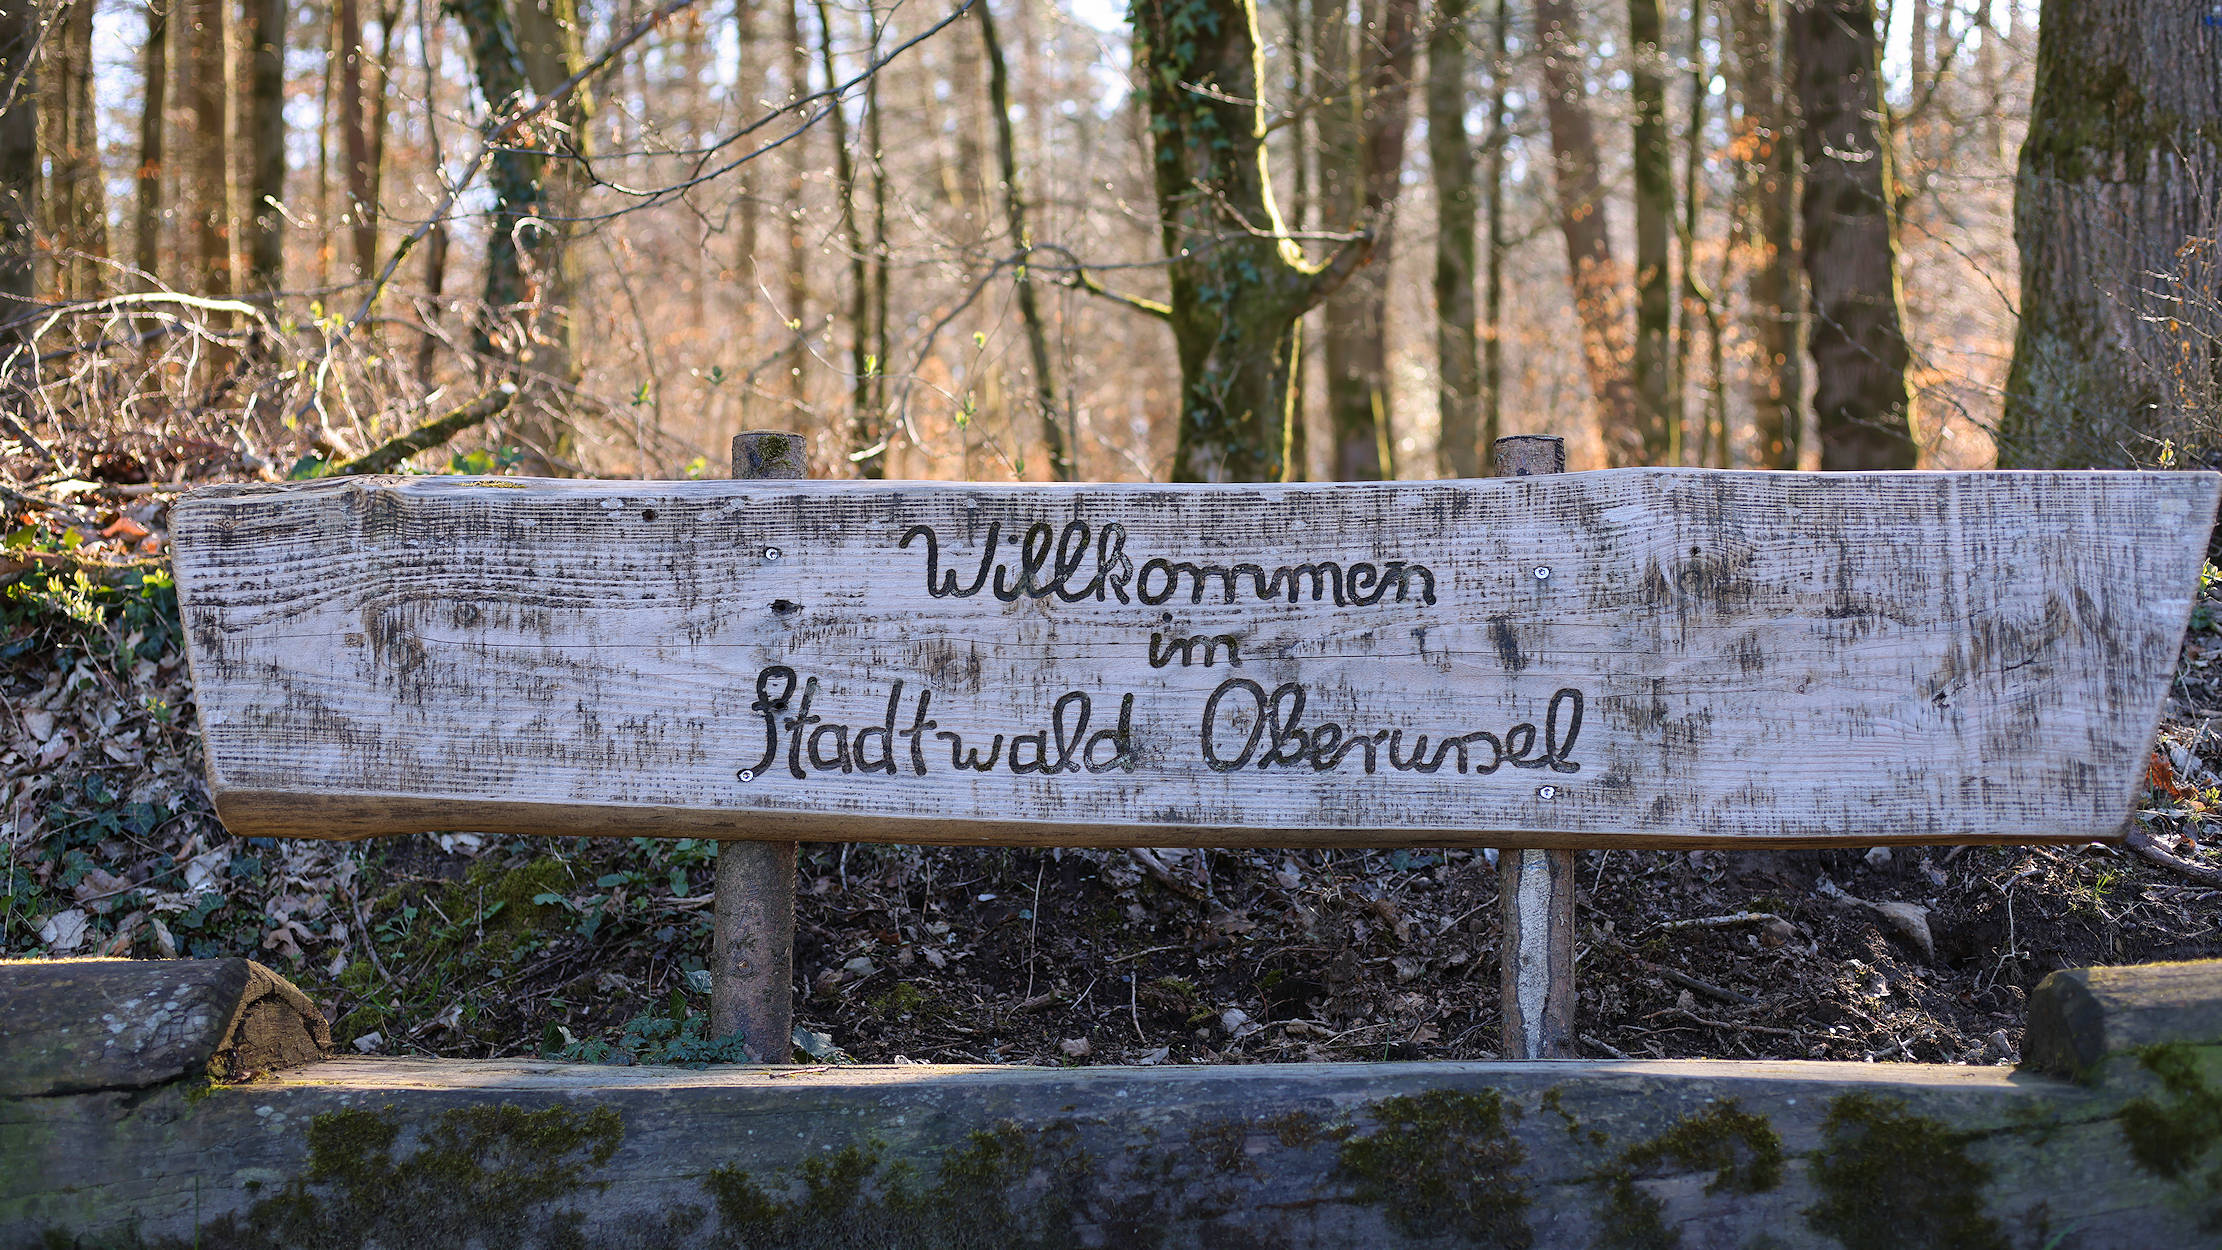 Willkommen
im
Stadtwald Oberursel